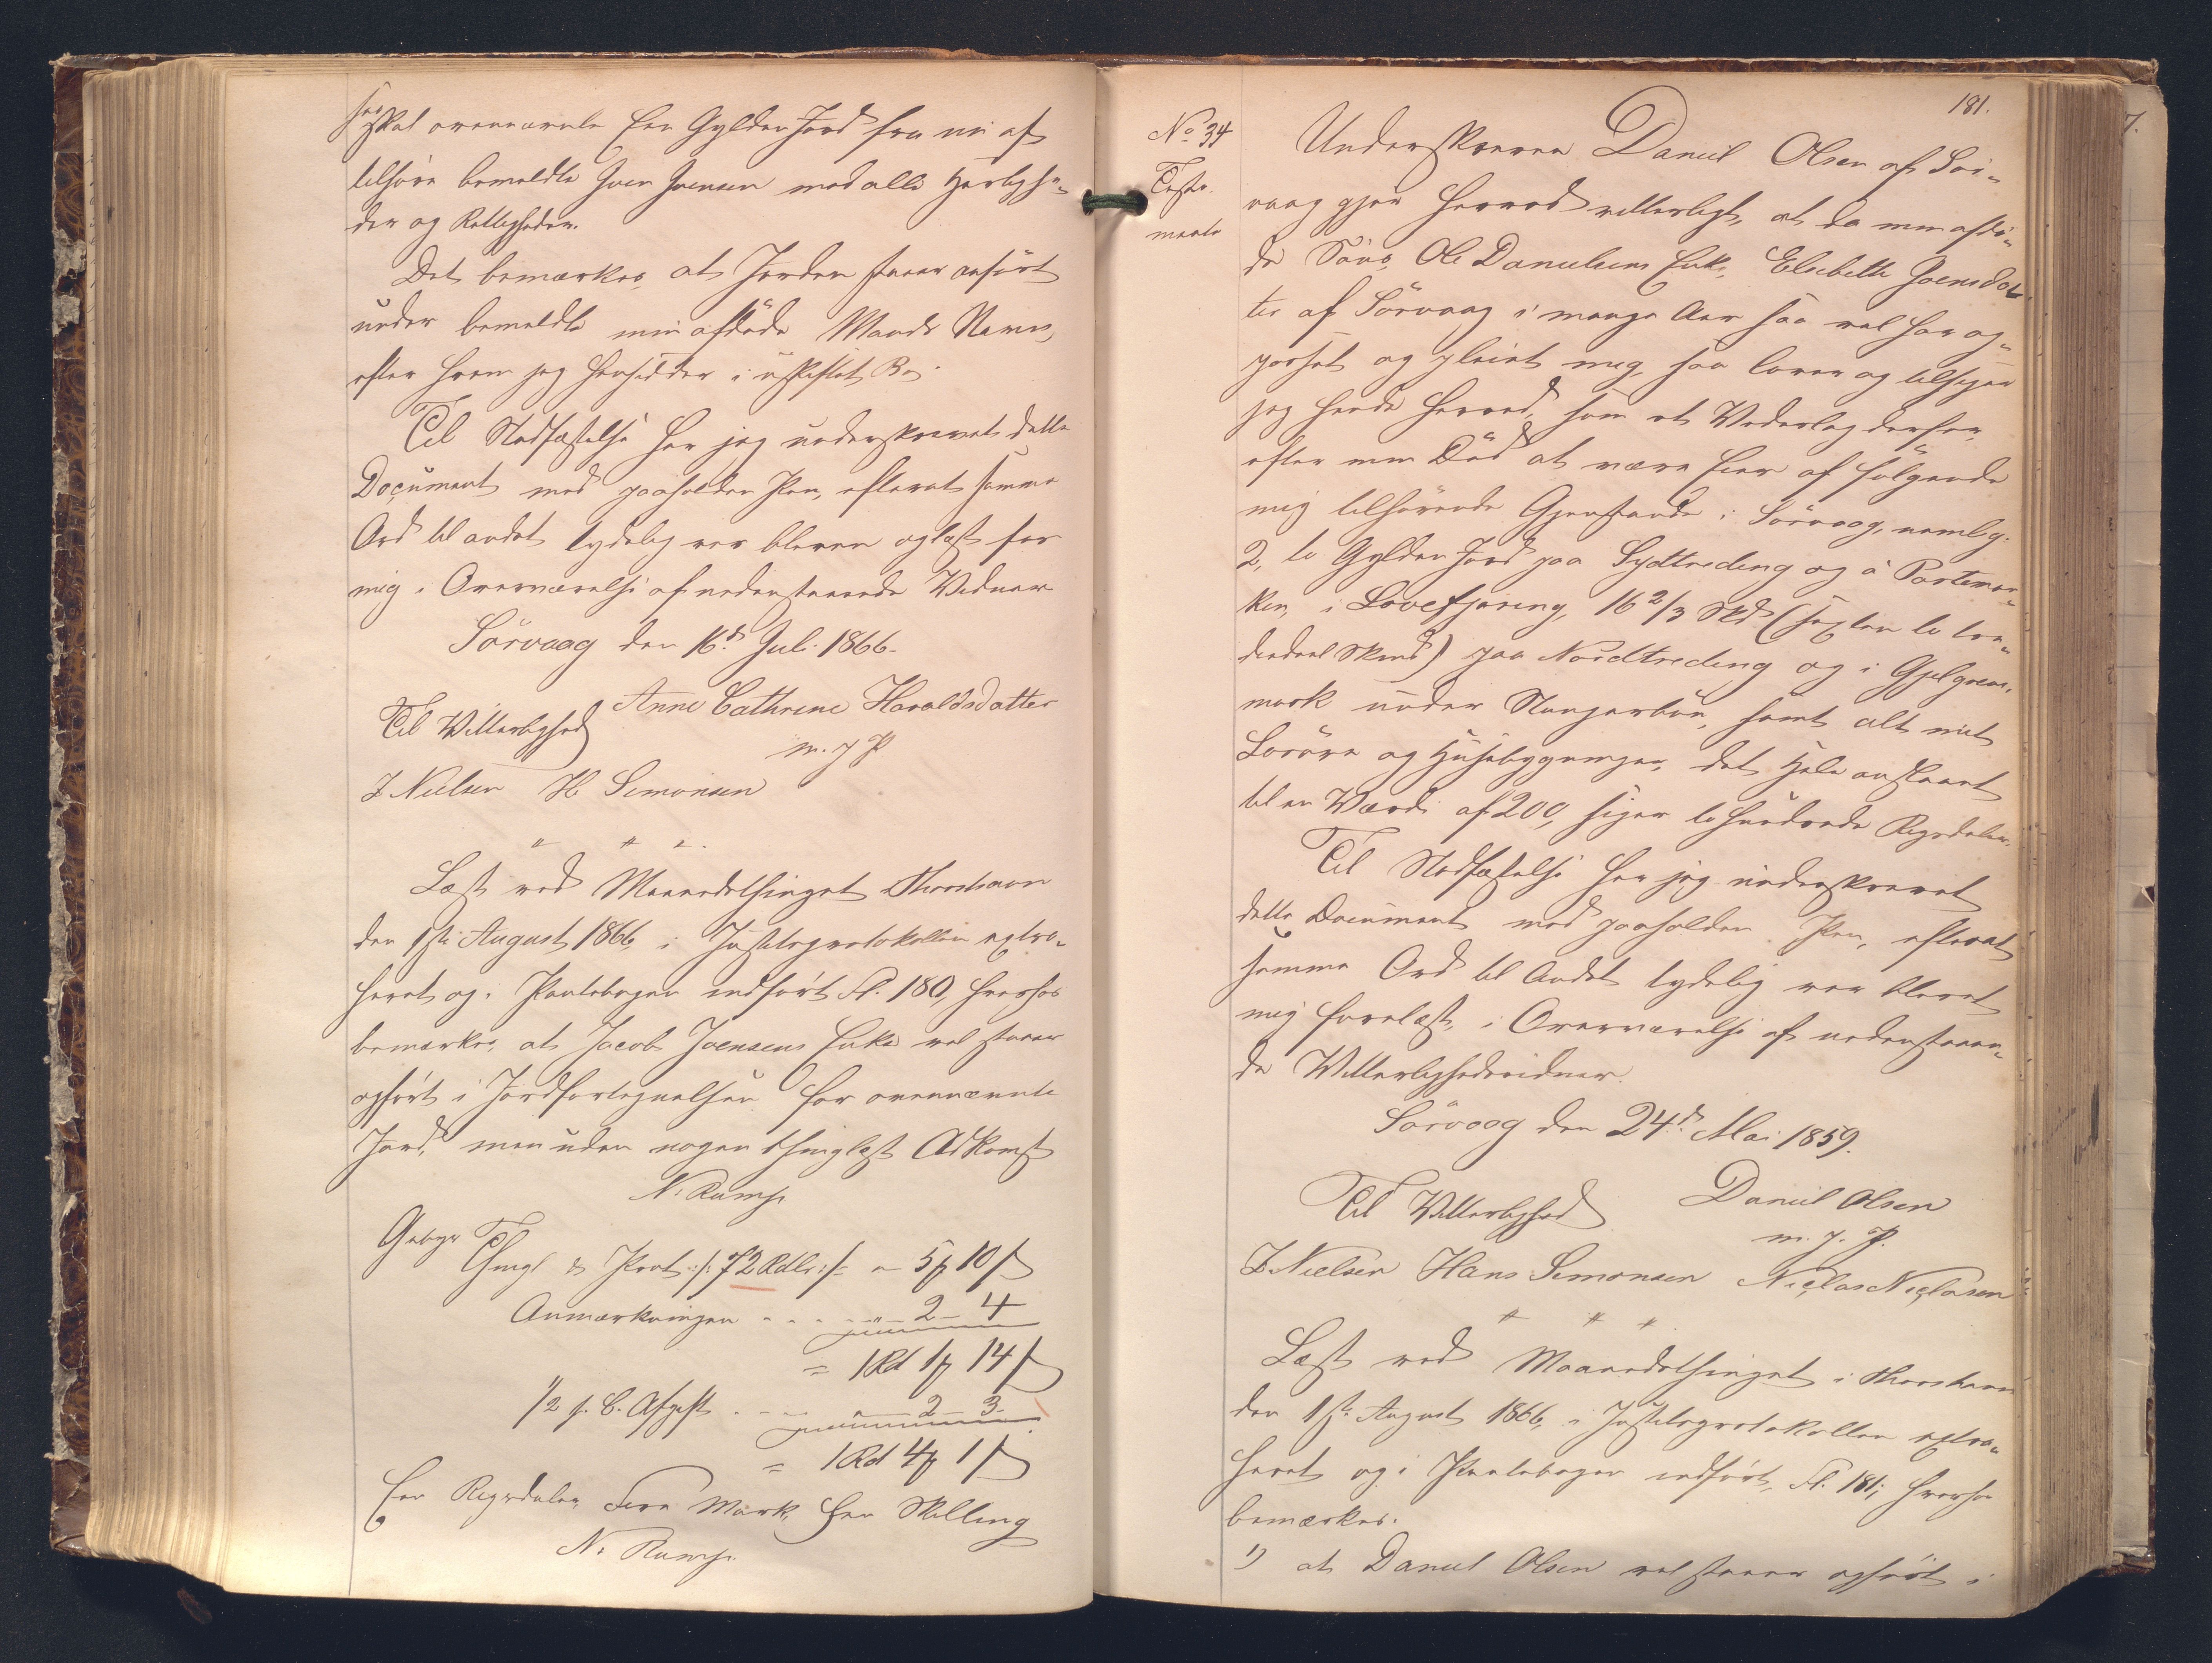 skal ovennævnte Een Gylden Jord fra nu af
tilhøre bemeldte Joen Joensen med alle Herlighe-
der og Rettigheder.
Det bemærkes, at Jorden staaer anført
under bemeldte min afdøde Mands Navn,
efter hvem jeg hensidder i uskiftet Bo.
Til Stadfæstelse har jeg underskrevet dette
Document med paaholden Pen, efterat samme
Ord til andet tydelig var bleven oplæst for
mig i Overværelse af nedenstaaende Vidner
Sörvaag den 16d Juli 1866.
Anne Cathrine Haraldsdatter
Til Vitterlighed
m. f. P
J Nielsen H Simonsen
" " "
Læst ved Maanedsthinget Thorshavn
den 1ste August 1866, i Justitsprotokollen extra-
heret og i Pantebogen indført Fl. 180, hvorhos
bemærkes, at Jacob Joensens Enke vel staaer
opført i Jordfortegnelsen for ovennævnte
Jord, men uden nogen thinglæst Adkomst
N. Rump.
Gebyr
Thingl & Prot :/: 72 Rdlr :/: = 5 ₻ 10 ſ
Anmærkningen - - - - " - 2 - 4
= 1 Rd 1 ₻ 14 ſ
1/2 p. C. Afgift - - - " - 2 - 3
= 1 Rd 4 ₻ 1 ſ
Een Rigsdaler Fire Mark Een Skilling
N. Rump.
181.
No 34
Testa-
mente
Underskrevne Daniel Olsen af Sör-
vaag gjør herved vitterligt, at da min afdø-
de Søns, Ole Danielsens Enke, Elsebeth Joensdat-
ter af Sörvaag i mange Aar saa vel har op-
passet og pleiet mig, saa lover og tilsiger
jeg hende herved, som et Vederlag derfor,
efter min Død at være Eier af følgende
mig tilhørende Gjenstande i Sörvaag, nemlig:
2, to Gylden Jord paa Sydtreding og i Partemar-
ken, i Lovefjæring, 16 2/3 Skd (sexten to tre-
diedeel Skind) paa Nordtreding og i Gjelgrens-
mark under Stangarbøn, samt alt mit
Løsøre og Husebygninger, det Hele anslaaet
til en Værdi af 200, siger to hundrede Rigsdaler.
Til Stadfæstelse har jeg underskrevet
dette Document med paaholden Pen, efterat
samme Ord til Andet tydelig var blevet
mig forelæst, i Overværelse af nedenstaaen-
de Vitterlighedsvidner.
Sörvaag den 24d Mai 1859.
Daniel Olsen
Til Vitterlighed
m. f. P.
J Nielsen Hans Simonsen Niclas Niclasen
" " "
Læst ved Maanedsthinget i Thorshavn
den 1ste August 1866, i Justitsprotokollen extra-
heret og i Pantebogen indført, Fl. 181; hvorhos
bemærkes:
1) at Daniel Olsen vel staaer opført i